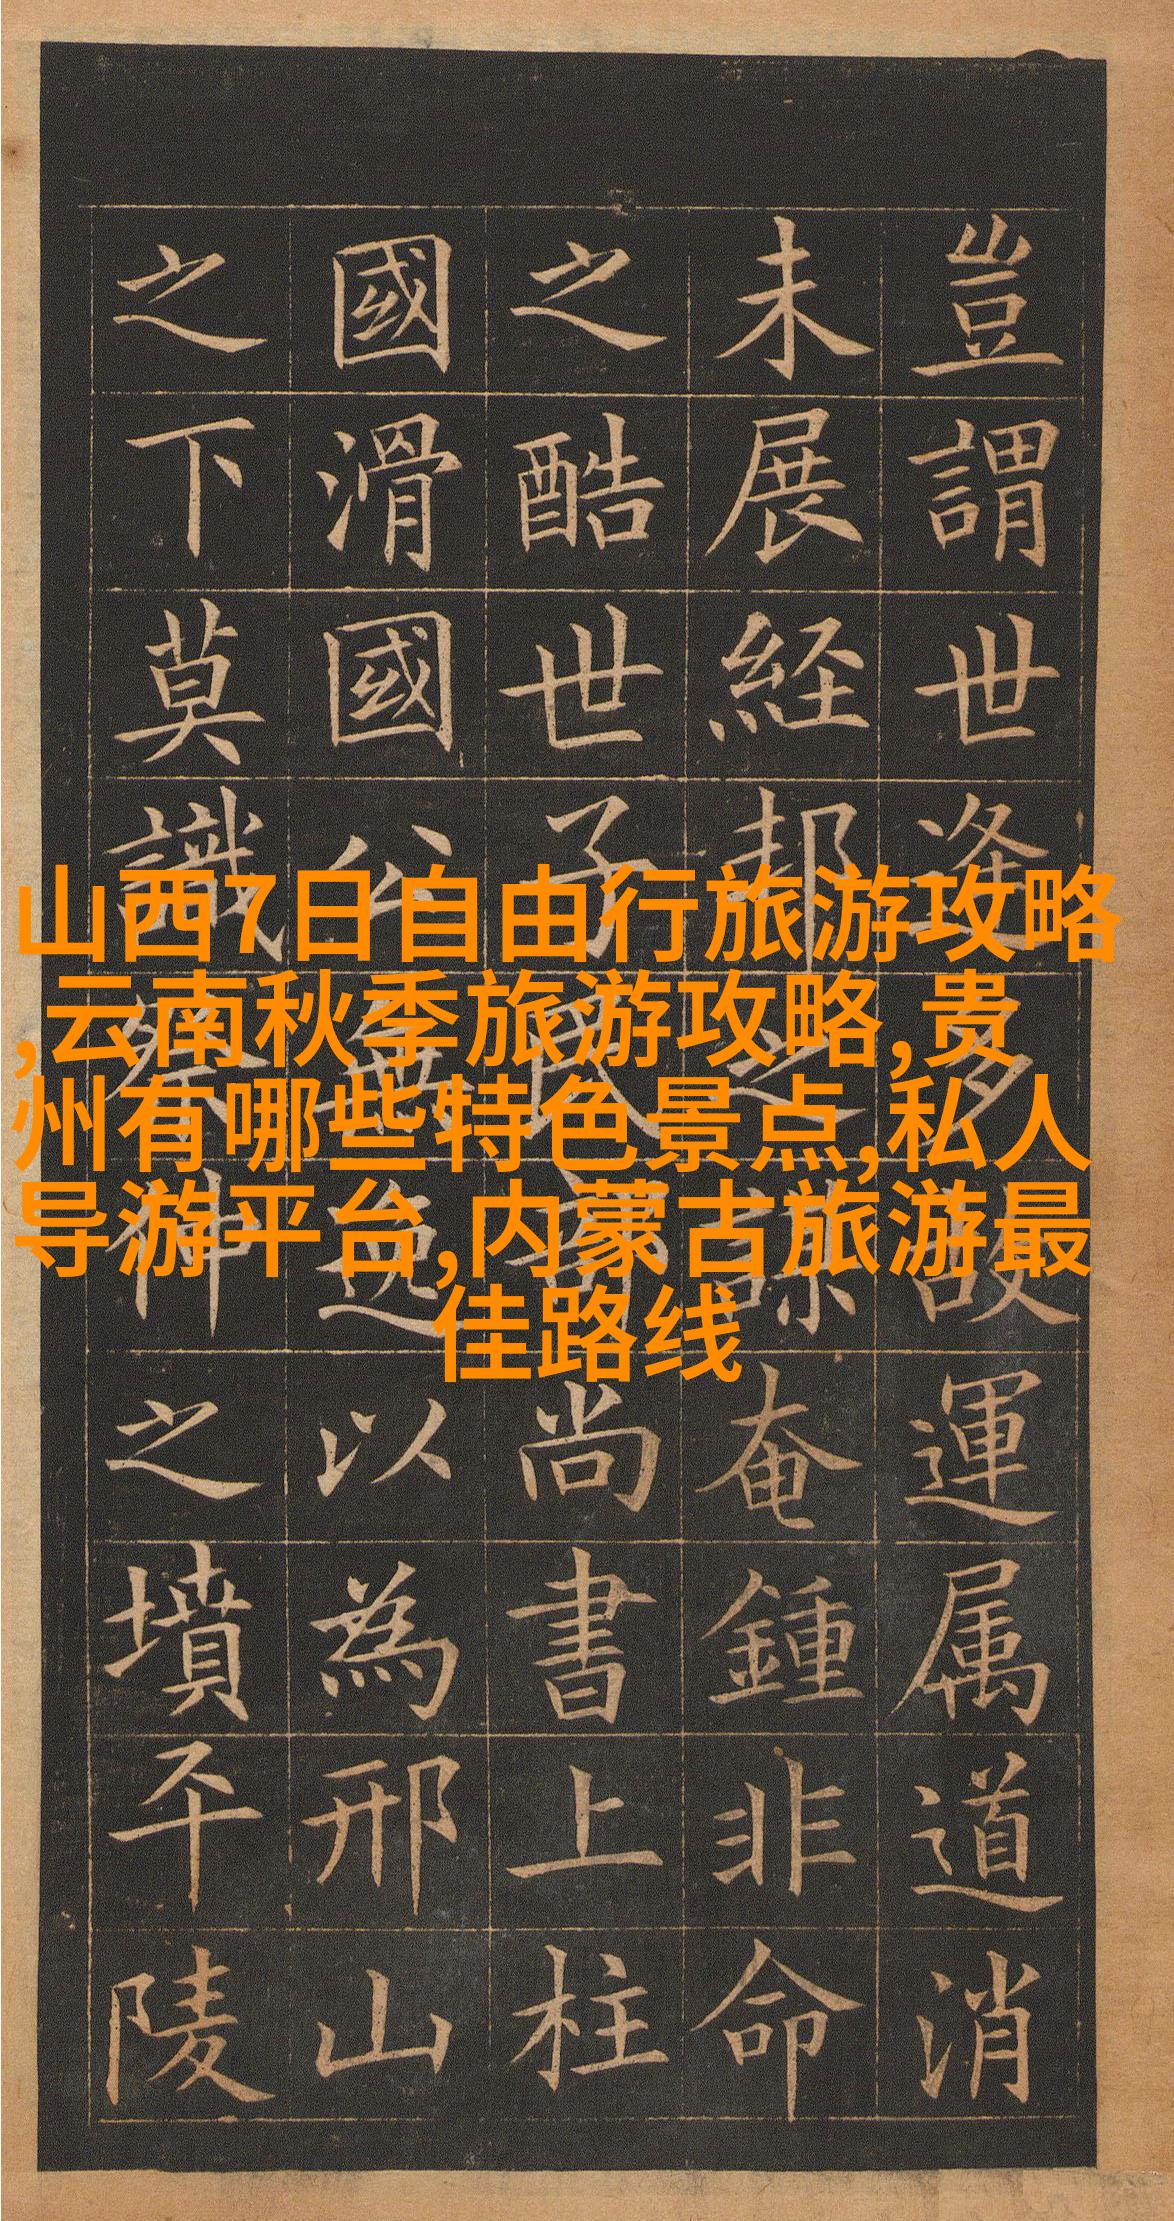 山西7日自由行旅游攻略
,云南秋季旅游攻略,贵
州有哪些特色景点,私人
导游平台,内蒙古旅游最
佳路线
豈謂世逢多故運属道消
未展経邦之謀奄鍾非命
之酷世子民部尚書上柱
國滑國公無逸以為邢山
之下莫識祭仲之墳平陵